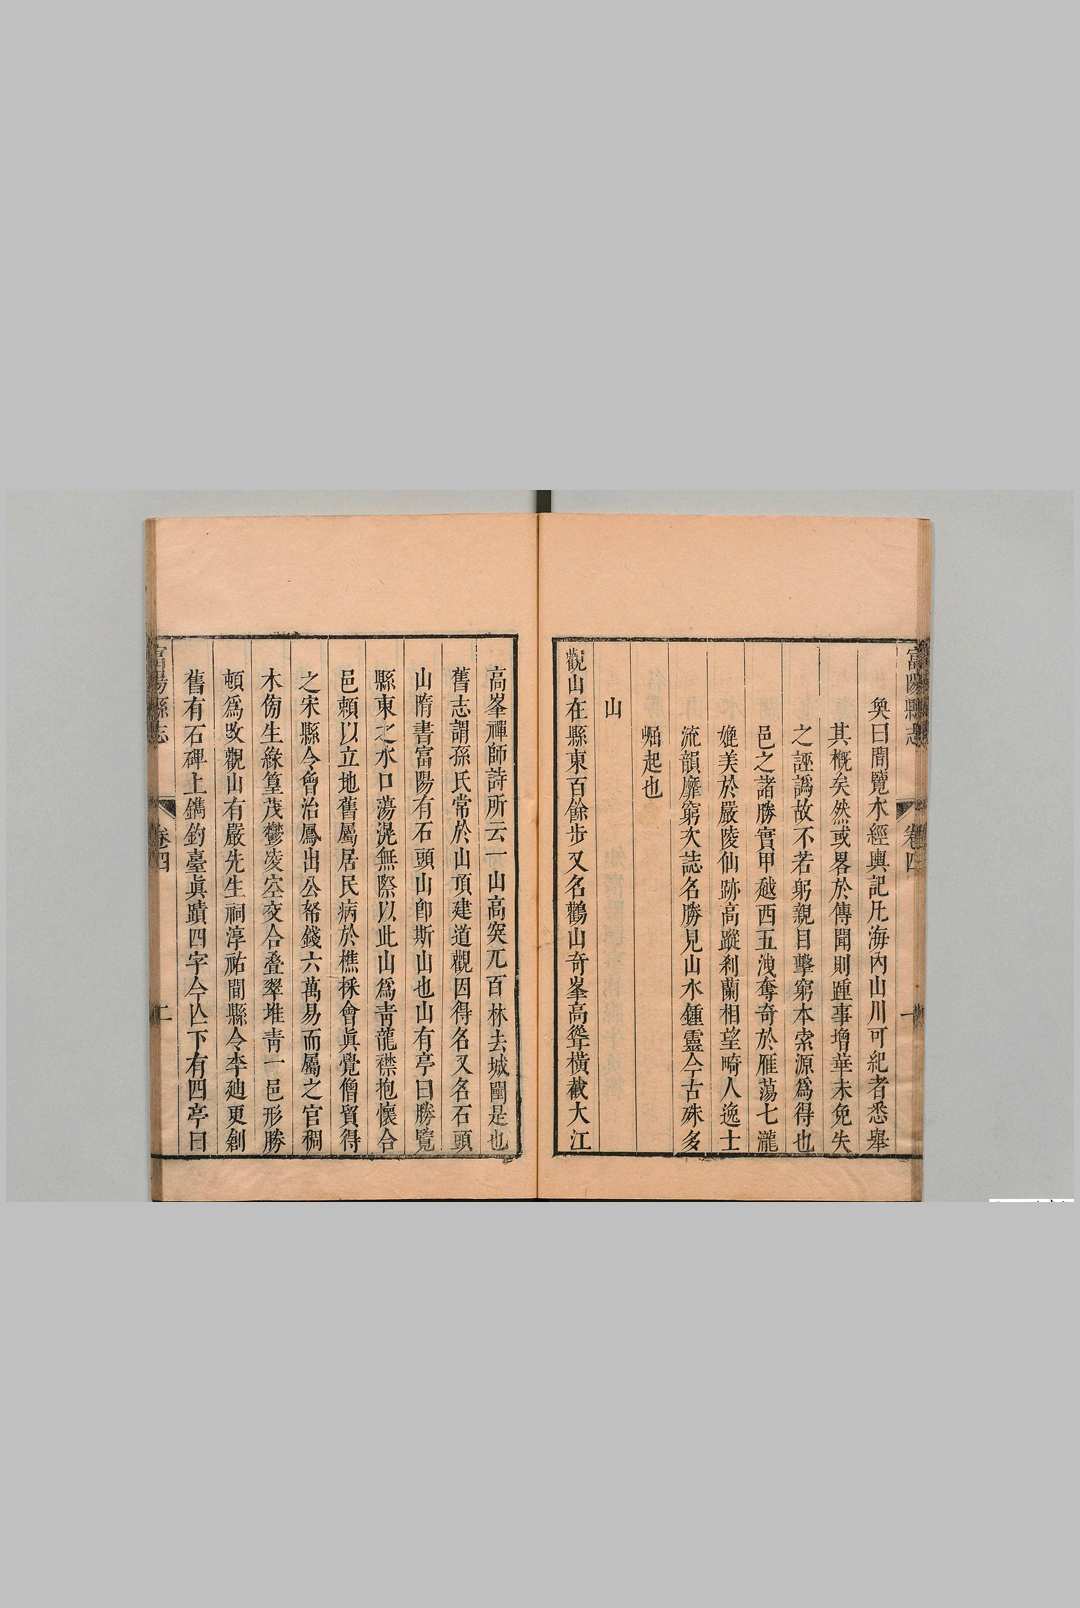 富陽縣志
卷四
一
奐曰間覽水經輿記凡海內山川可紀者悉舉
其概矣然或畧於傳聞則踵事增華未免失
之誣譌故不若躬親目擊窮本索源爲得也
邑之諸勝實甲越西五洩奪奇於雁蕩七瀧
媲美於嚴陵仙跡高蹤刹蘭相望畸人逸士
流韻靡窮次誌名勝見山水鍾靈今古殊多
崛起也
山
觀山在縣東百餘步又名鸛山奇峯高聳橫截大江
高峯禪師詩所云一山高突兀百林去城闉是也
舊志謂孫氏常於山頂建道觀因得名又名石頭
山隋書富陽有石頭山卽斯山也山有亭曰勝覽
縣東之水口蕩滉無際以此山爲靑龍襟抱懷合
邑頼以立地舊屬居民病於樵採會眞覺僧貿得
之宋縣令會治鳳出公帑錢六萬易而屬之官稠
木傍生綠篁茂鬱凌空交合叠翠堆靑一邑形勝
頓爲改觀山有嚴先生祠淳祐間縣令李迪更創
舊有石碑上鐫釣臺眞蹟四字今亾下有四亭曰
富陽縣志
卷四
二